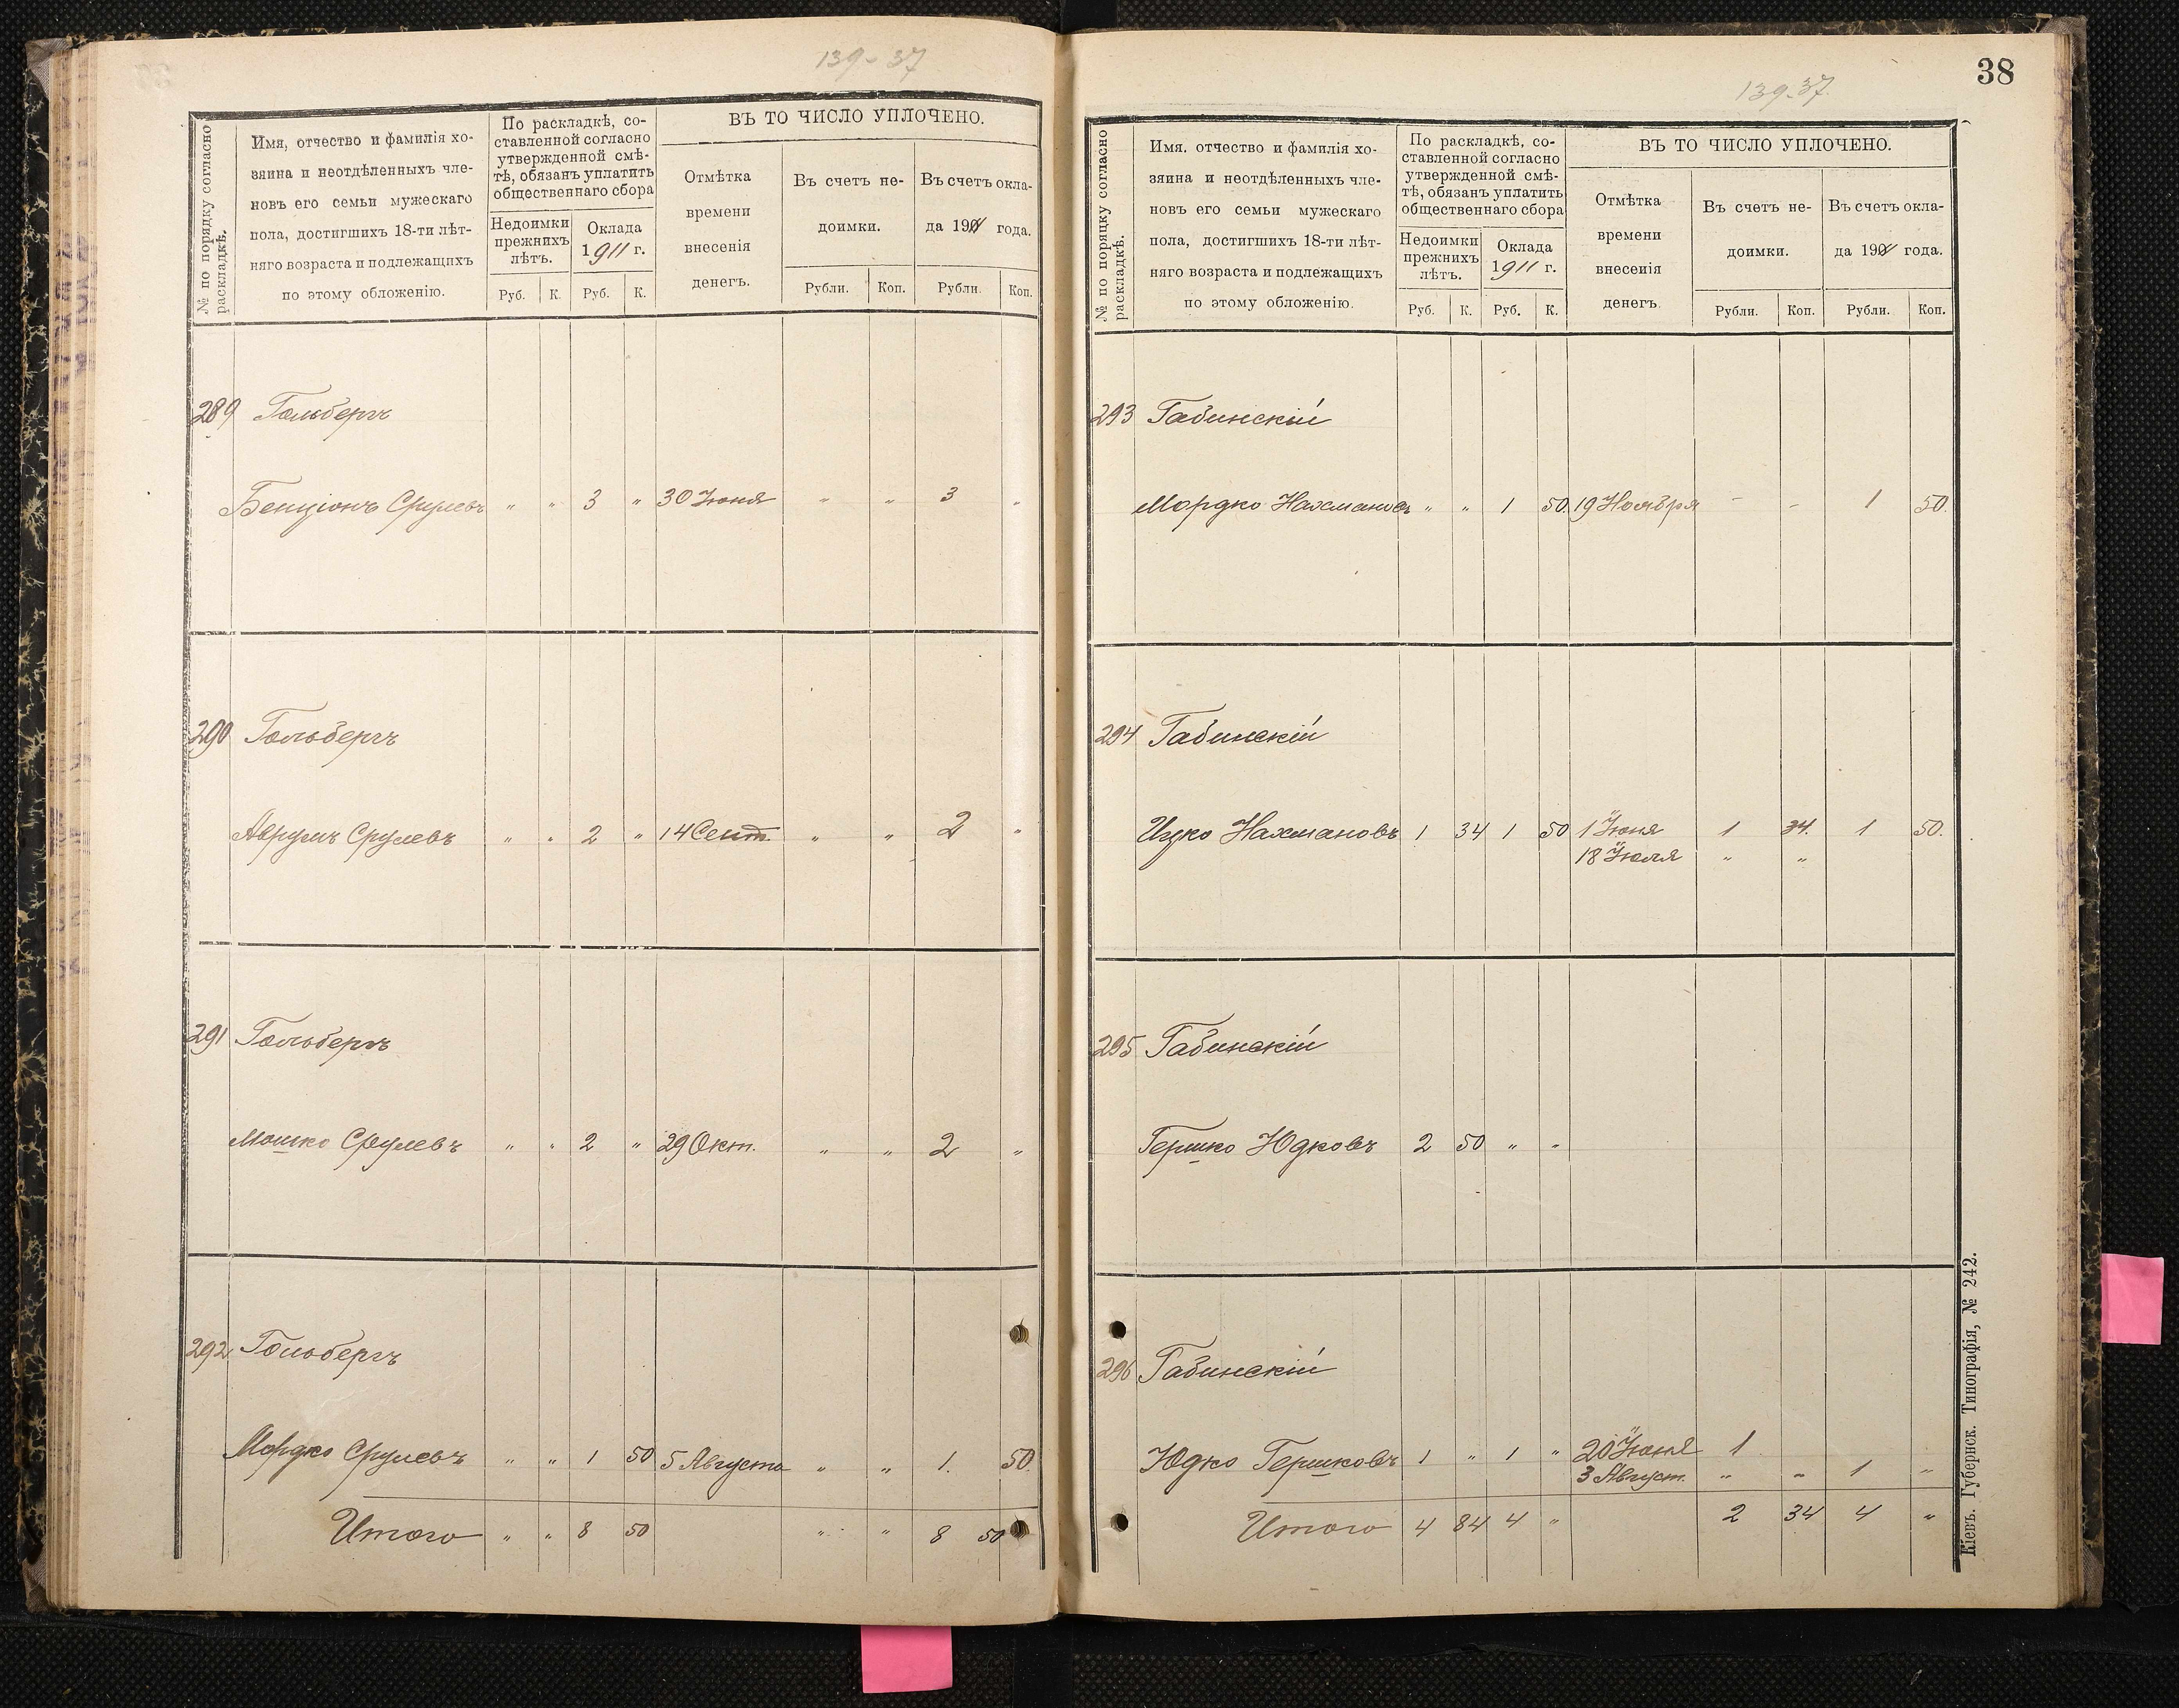 139-37
№ по порядку согласно
раскладкѣ.
Имя, отчество и фамилія хо-
зяина и неотдѣленныхъ чле-
новъ его семьи мужескаго
пола, достигшихъ 18-ти лѣт-
няго возраста и подлежащихъ
по этому обложенію.
По раскладкѣ, со-
ставленной согласно
утвержденной смѣ-
тѣ, обязанъ уплатить
общественнаго сбора
Недоимки
прежнихъ
лѣтъ.
Оклада
1911 г.
Руб. К. Руб. К.
ВЪ ТО ЧИСЛО УПЛОЧЕНО.
Отмѣтка
времени
внесенія
денегъ.
Въ счетъ не-
доимки.
Въ счетъ окла-
да 1911 года.
Рубли. Коп. Рубли. Коп.
289 Гольбергъ
Бенціонъ Срулевъ " " 3 " 30 Іюня " " 3 "
290 Гольбергъ
Аврумъ Срулевъ " " 2 " 14 Сент. " " 2 "
291 Гольбергъ
Мошко Срулевъ " " 2 " 29 Окт. " " 2 "
292 Гольбергъ
Мордко Срулевъ " " 1 50 5 Августа " " 1. 50.
Итого " " 8 50 " " 8 50
38
139-37.
№ по порядку согласно
раскладкѣ.
Имя. отчество и фамилія хо-
зяина и неотдѣленныхъ чле-
новъ его семьи мужескаго
пола, достигшихъ 18-ти лѣт-
няго возраста и подлежащихъ
по этому обложенію.
По раскладкѣ, со-
ставленной согласно
утвержденной смѣ-
тѣ, обязанъ уплатить
общественнаго сбора
Недоимки
прежнихъ
лѣтъ.
Оклада
1911 г.
Руб. К. Руб. К.
ВЪ ТО ЧИСЛО УПЛОЧЕНО.
Отмѣтка
времени
внесенія
денегъ.
Въ счетъ не-
доимки.
Въ счетъ окла-
да 1911 года.
Рубли. Коп. Рубли. Коп.
293 Габинскій
Мордко Нахмановъ " " 1 50. 19 Ноября - - 1 50.
294 Габинскій
Ицко Нахмановъ 1 34 1 50 1 Іюня 1 34. 1 50.
18 Іюля " "
295 Габинскій
Гершко Юдковъ 2 50 " "
296 Габинскій
Юдко Гершковъ 1 " 1 " 20 Іюня 1
3 Август. " " 1 "
Итого 4 84 4 " 2 34 4 "
Кіевъ. Губернск. Типографія, № 242.